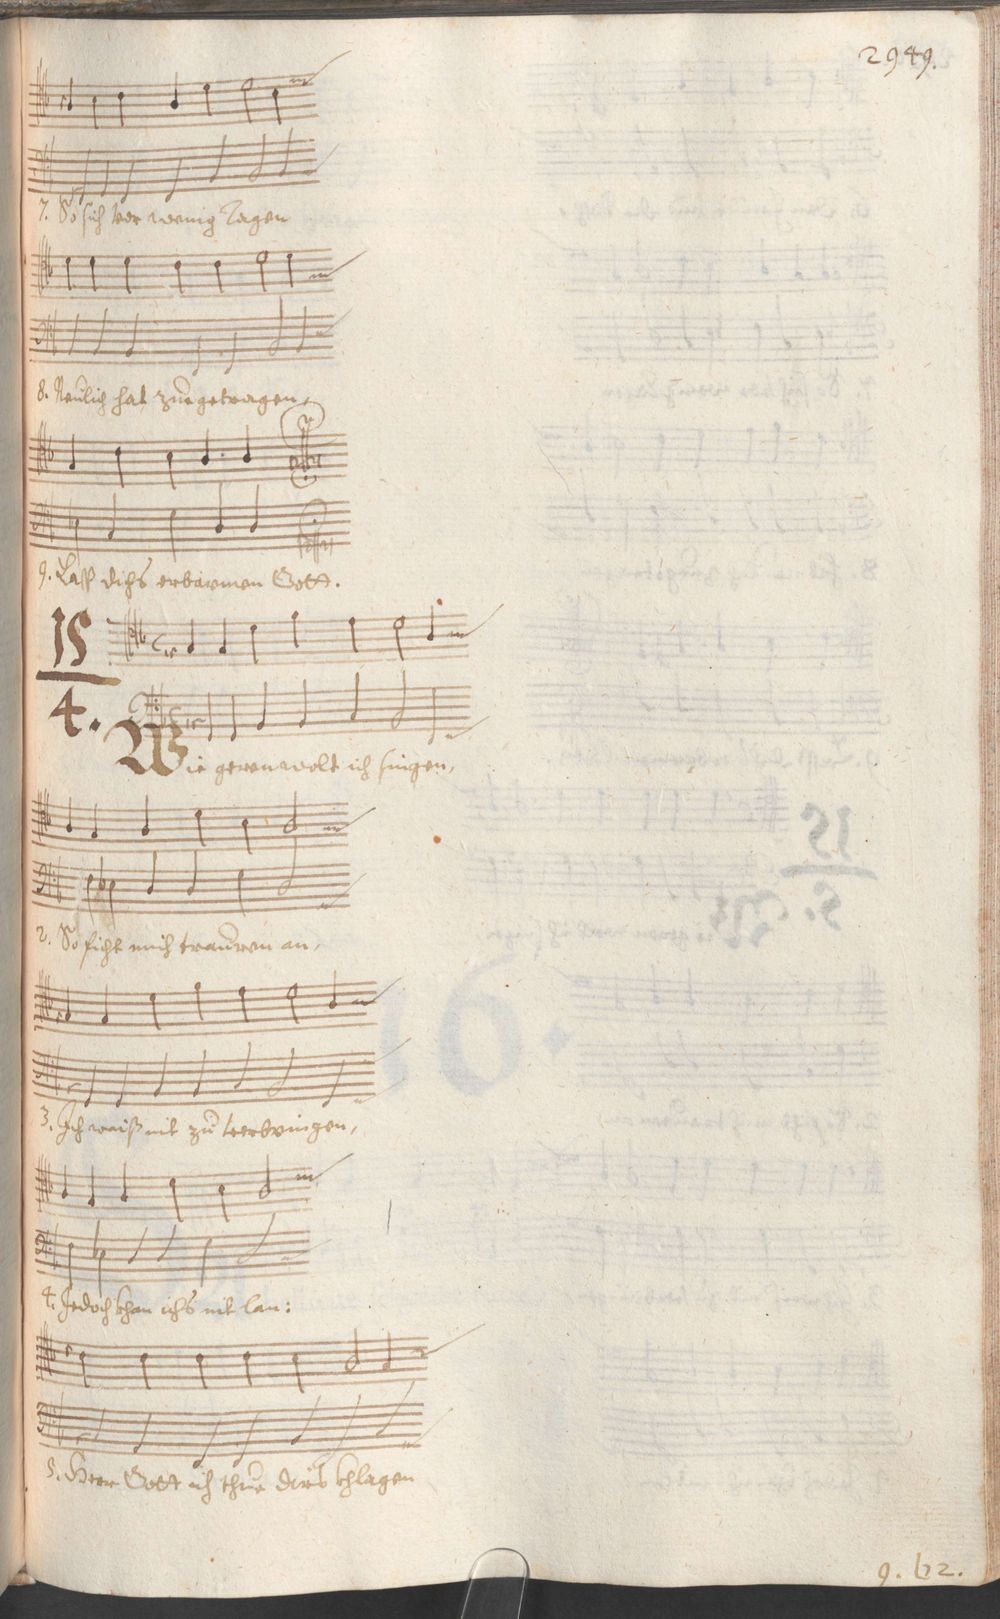 2949.
7. So sich vor wenig Tagen
8. Neulich hat zuegetragen,
9. Laß dichs erbarmen Gott.
15
4.
Wie geren wolt ich singen,
2. So ficht mich trauren an,
3. Ich waiß nit zu verbringen,
4. Jedoch khan ichs nit lan:
5. Herr Gott ich thue dirs khlagen